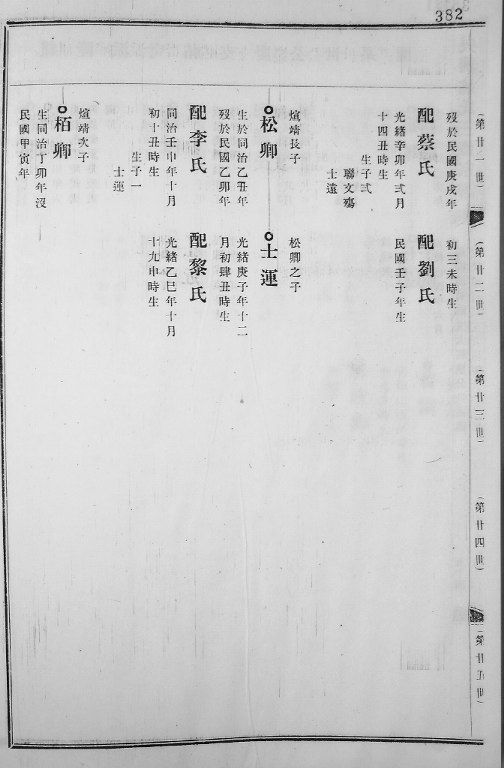 382
(第廿一世)
(第廿二世)
(第廿三世)
(第廿四世)
(第廿五世)
歿於民國庚戌年
配蔡氏
光緒辛卯年弍月
十四丑時生
生子弍
聯文殤
士遠
煊靖長子
松卿
生於同治乙丑年
歿於民國乙卯年
配李氏
同治壬申年十月
初十丑時生
生子一
士運
煊靖次子
栢卿
生同治丁卯年沒
民國甲寅年
初三未時生
配劉氏
民國壬子年生
松卿之子
士運
光緒庚子年十二
月初肆丑時生
配黎氏
光緒乙巳年十月
十九申時生